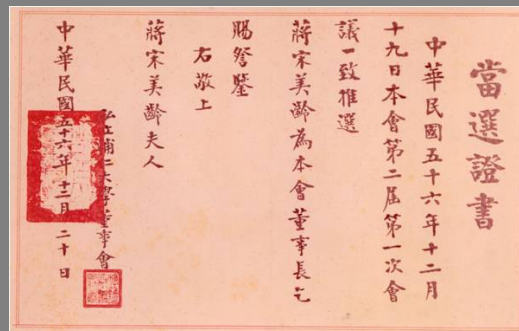 當選證書
中華民國五十六年十二月
十九日本會第二屆第一次會
議一致推選
蔣宋美齡為本會董事長乞
賜詧鑒
右敬上
蔣宋美齡夫人
私立輔仁大學董事會
中華民國五十六年十二月二十日